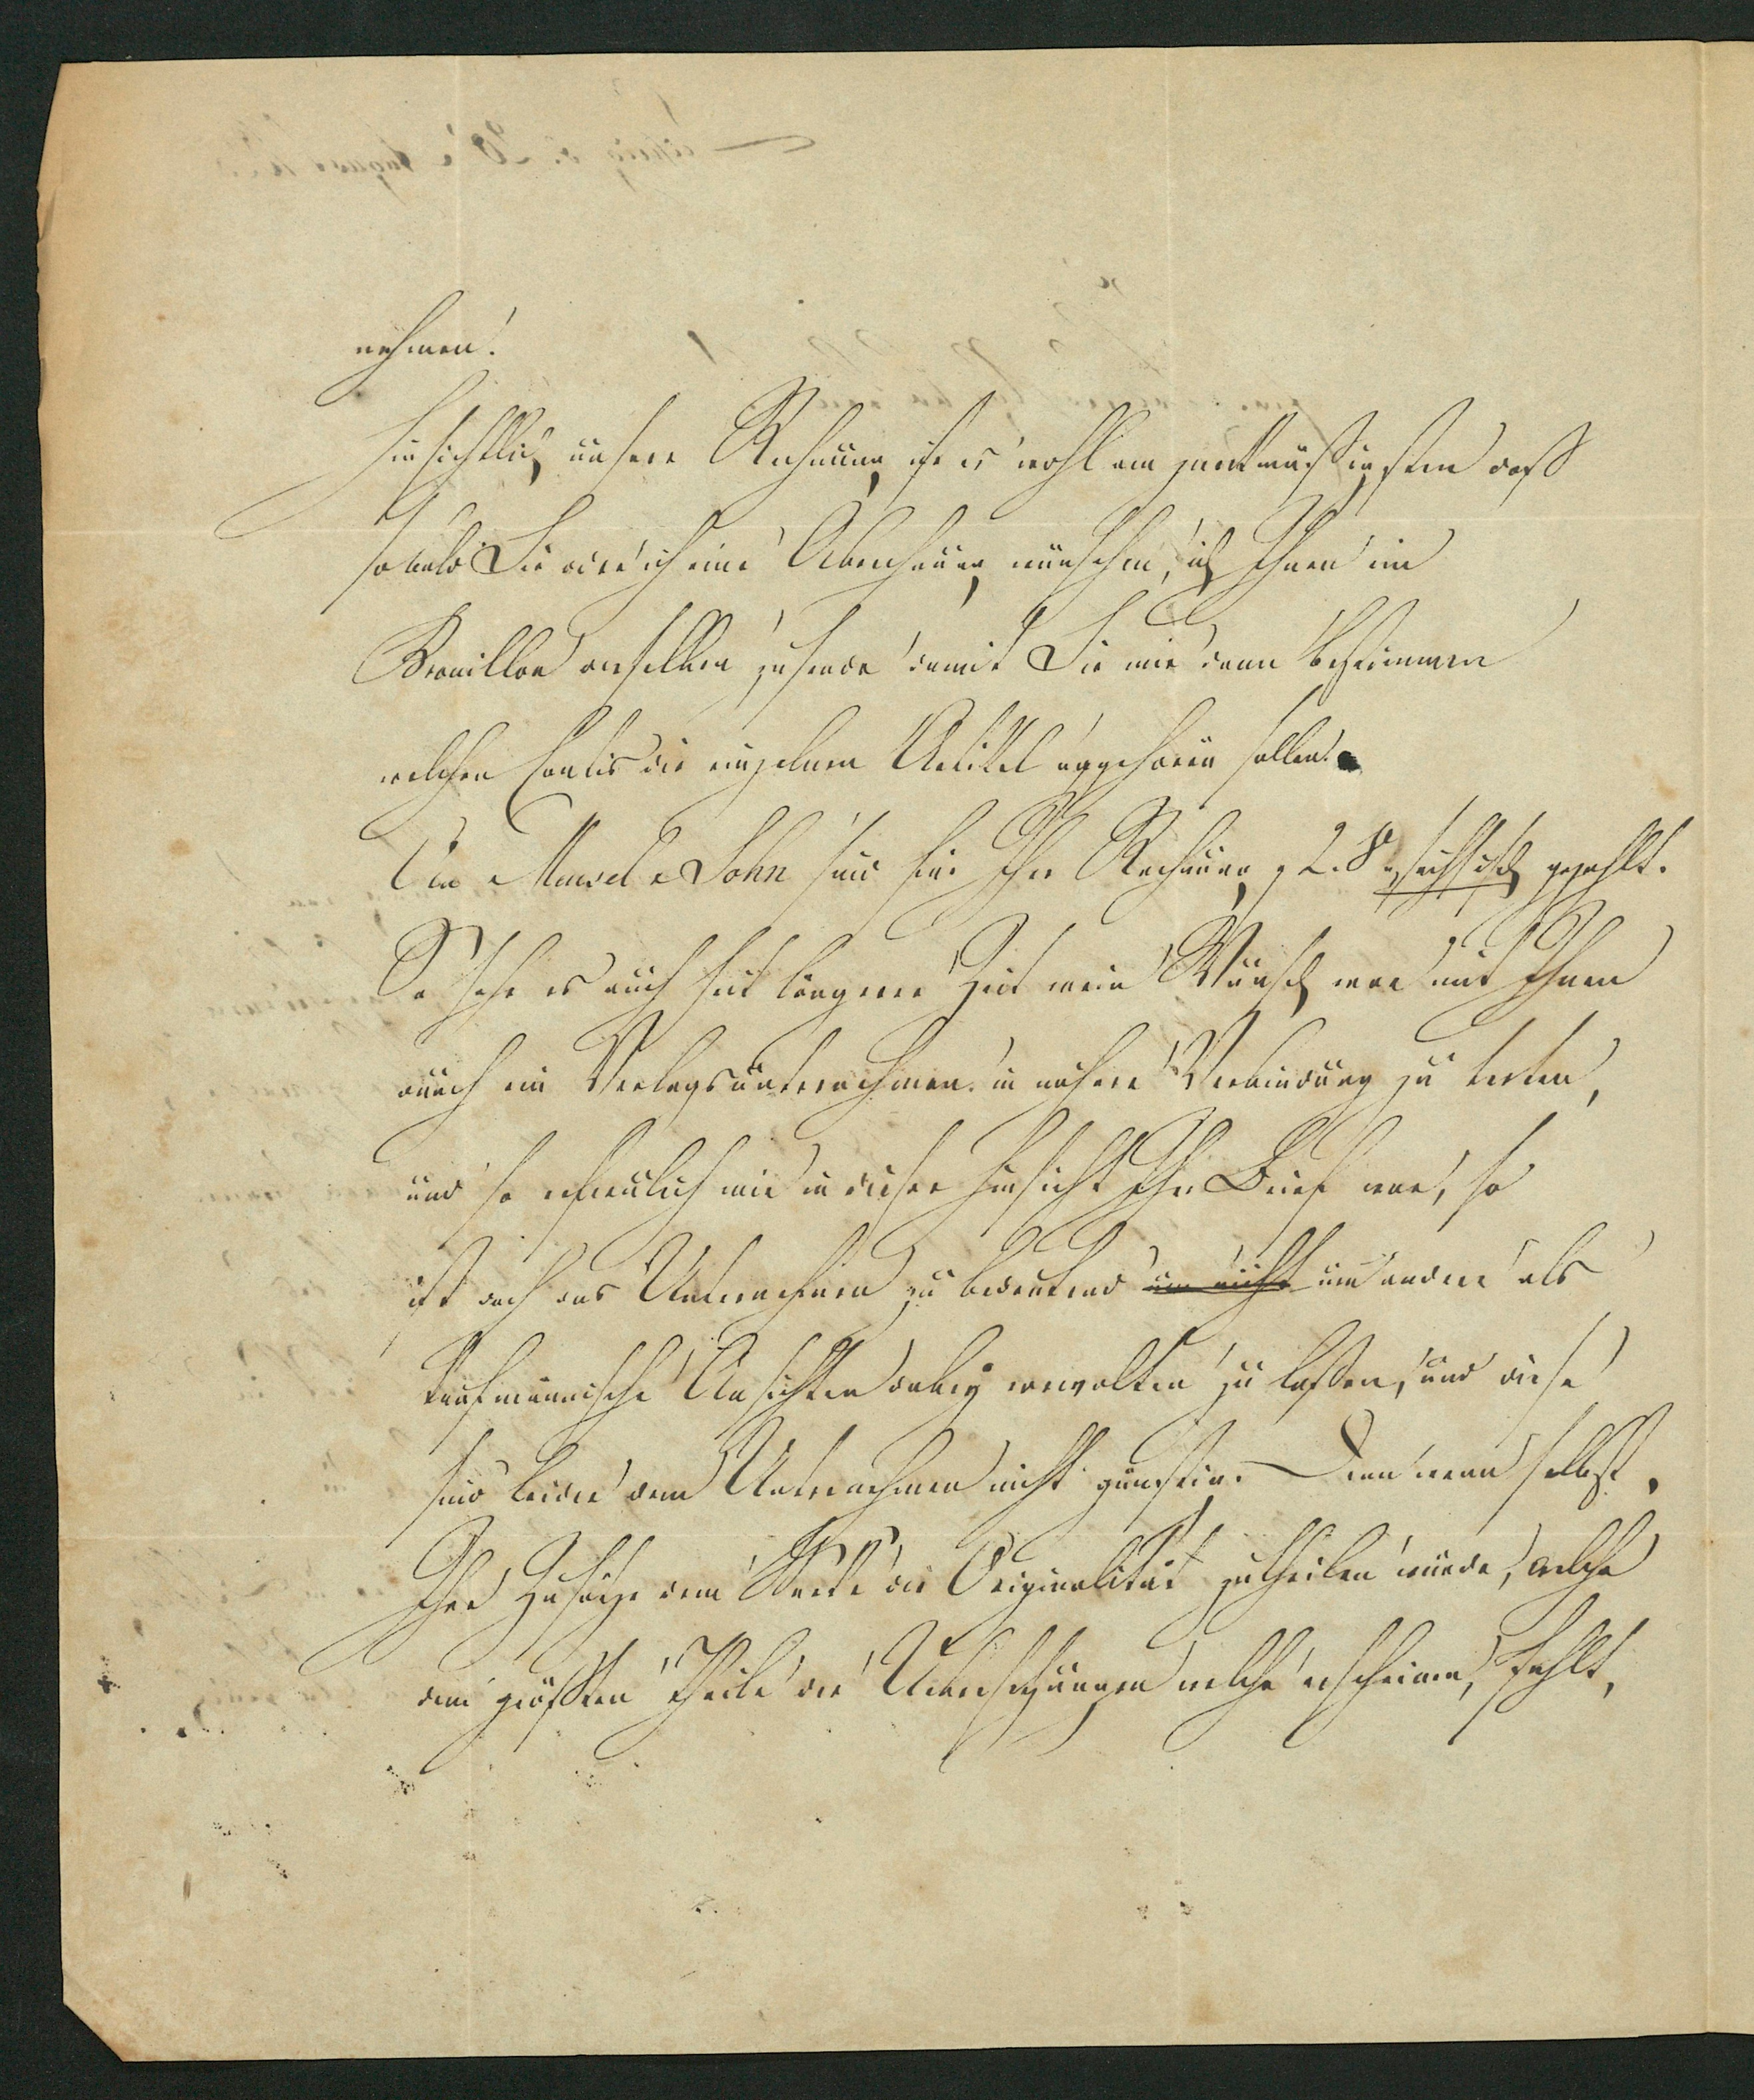 nehmen.
Hinsichtlich unserer Rechnung ist es wohl am zweckmäßigsten daß
sobald Sie oder ich eine Abrechnung wünschen, ich Ihnen im
Brouillon dieselben zusende damit Sie mir dann bestimmen
welchen Contis die einzelnen Artikel angehören sollen.
An Mensel & Sohn sind für Ihre Rechnung 2. 8 sächsisch gezahlt.
So sehr es auch seit längerer Zeit mein Wunsch war mit Ihnen
durch ein Verlagsunternehmen in nähere Verbindung zu treten,
und so erfreulich mir in dieser Hinsicht Ihr Brief war, so
ist doch das Unternehmen zu bedeutend um nicht um andere als
kaufmännische Ansichten dabey vorwalten zu laßen, und diese
sind leider dem Unternehmen nicht günstig. Denn wenn selbst
Ihre Zusätze dem Werke die Originalität zutheilen würde, welche
dem größten Theile der Uebersetzungen welche erscheinen, fehlt,